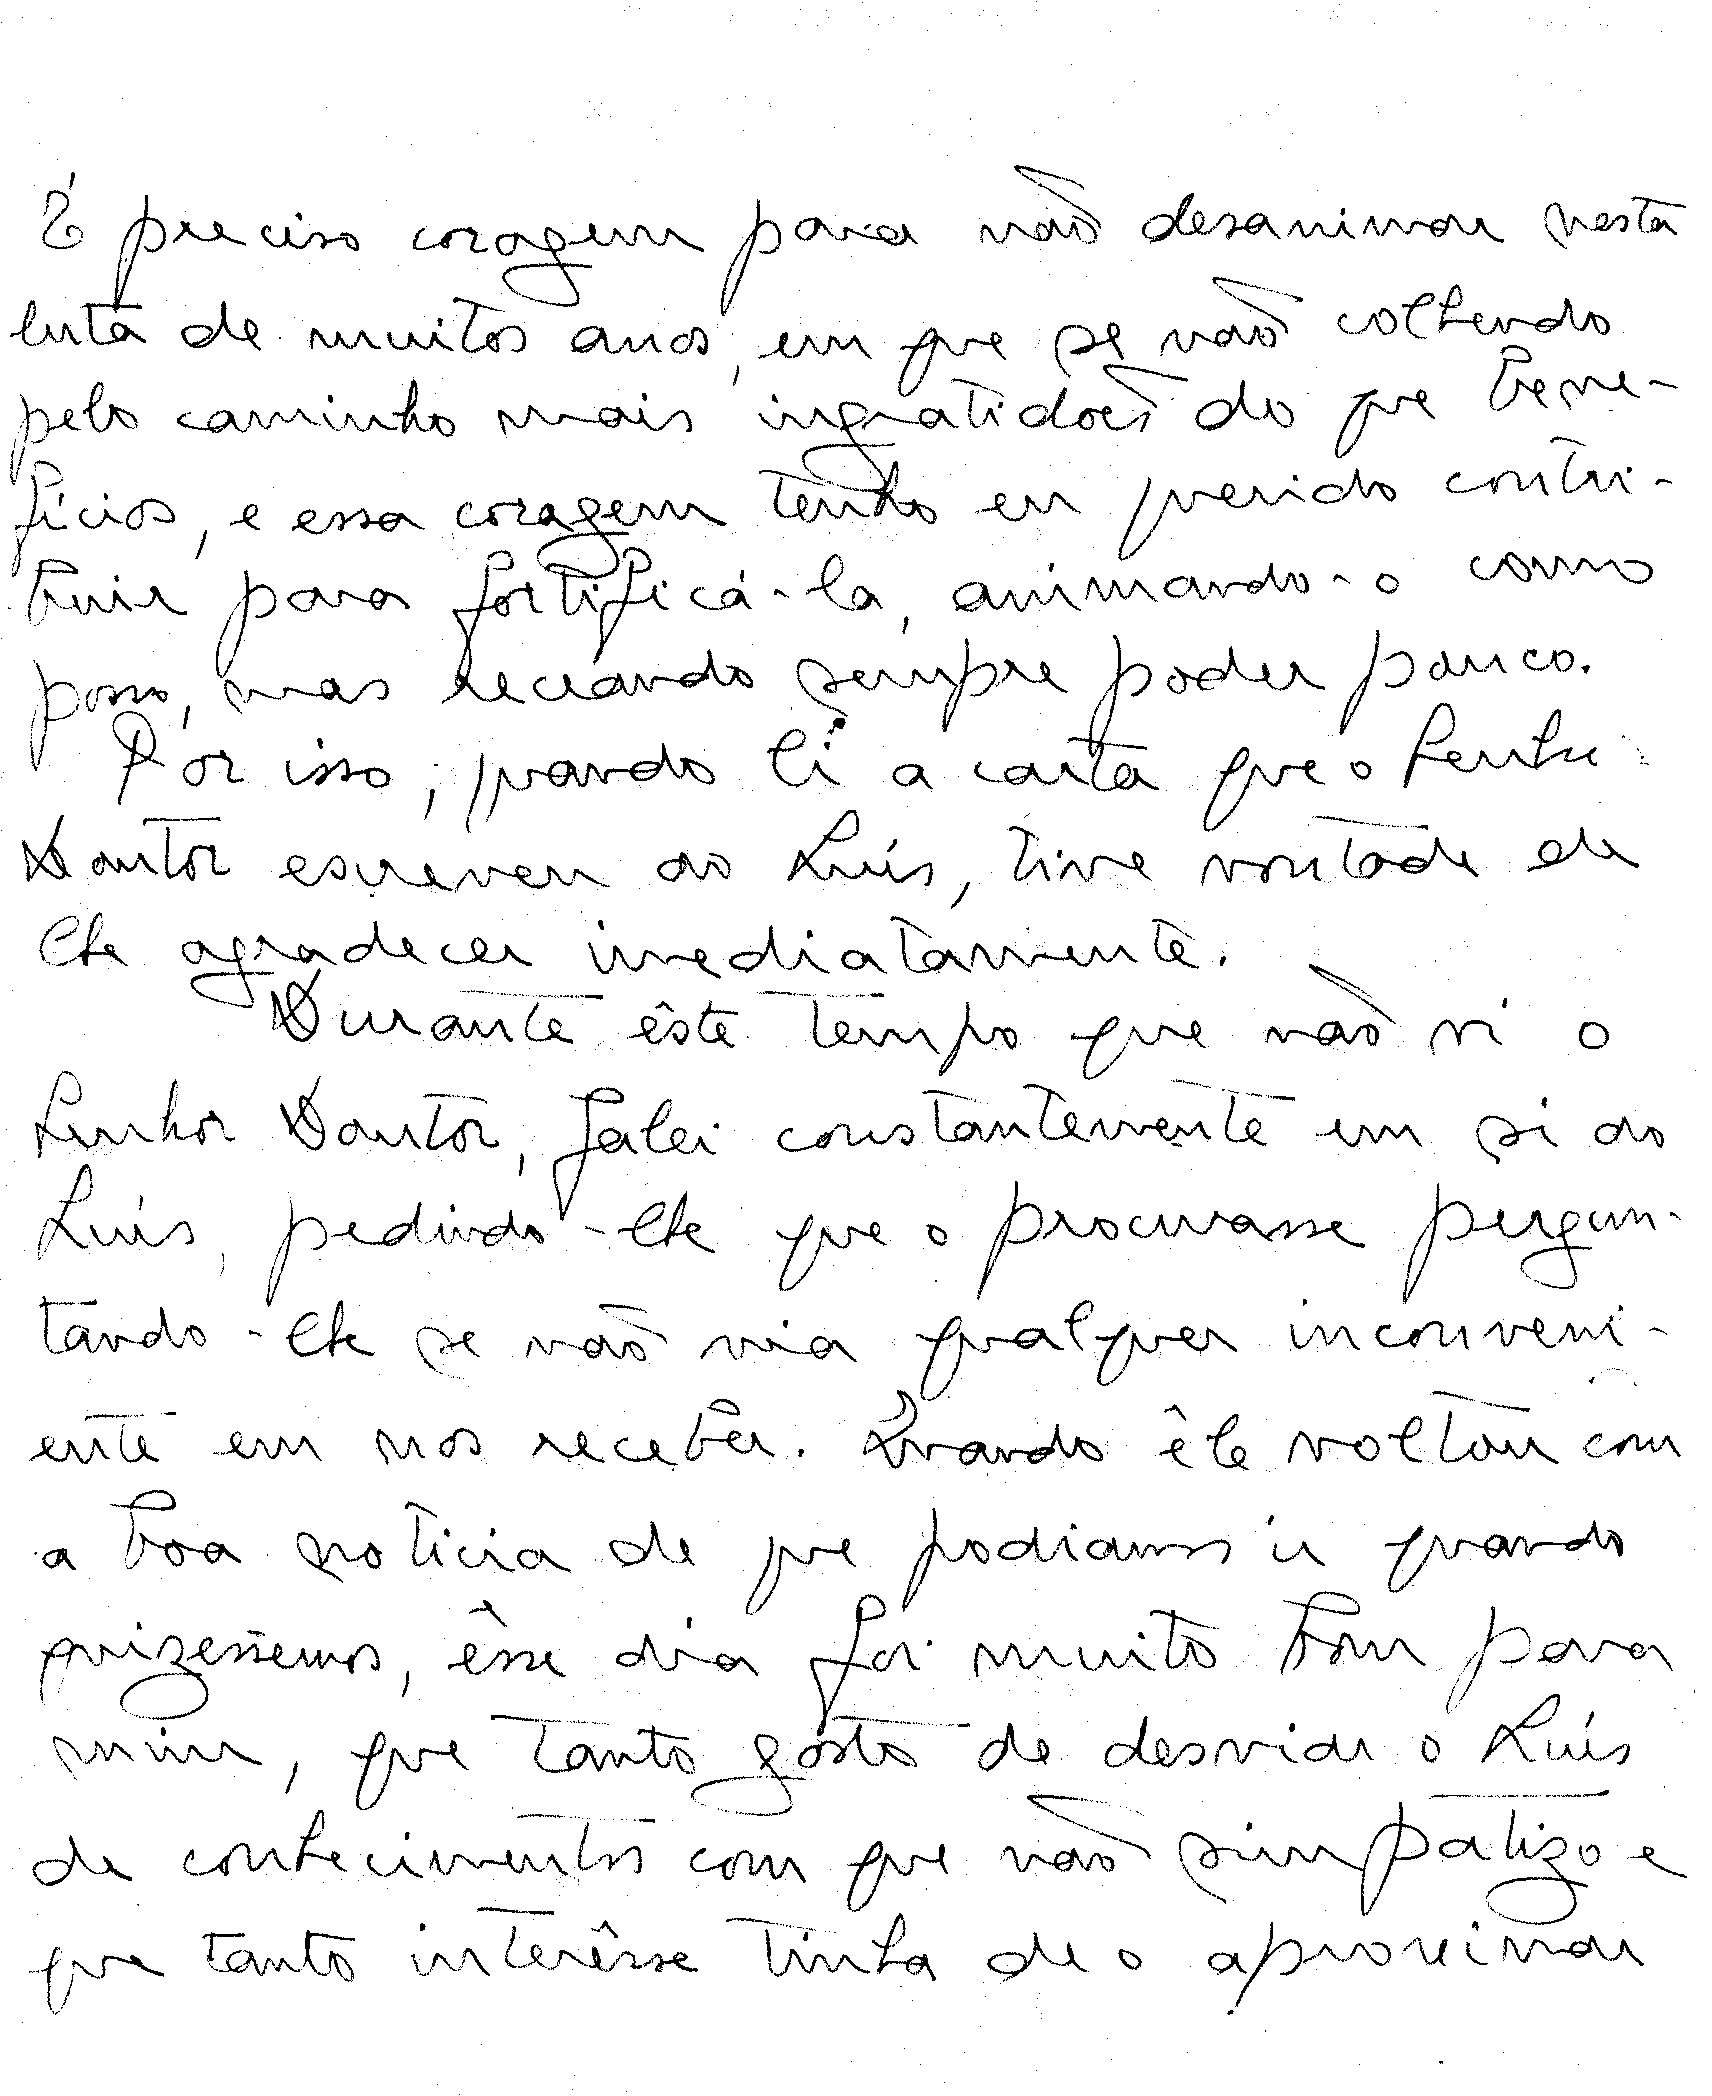 É preciso coragem para não desanimar nesta
luta de muitos anos, em que se vão colhendo
pelo caminho mais ingratidões do que bene-
fícios, e essa coragem tenho eu querido contri-
buir para fortificá-la, animando-o como
posso, mas receando sempre poder pouco.
Por isso, quando li a carta que o Senhor
Doutor escreveu ao Luís, tive vontade de
lhe agradecer imediatamente.
Durante êste tempo que não vi o
Senhor Doutor, falei constantemente em si ao
Luís, pedindo-lhe que o procurasse pergun-
tando-lhe se não via qualquer inconveni-
ente em nos receber. Quando êle voltou com
a boa noticia de que podiamos ir quando
quizessemos, êsse dia foi muito bom para
mim, que tanto gosto de desviar o Luís
de conhecimentos com que não simpatizo e
que tanto interêsse tinha de o aproximar